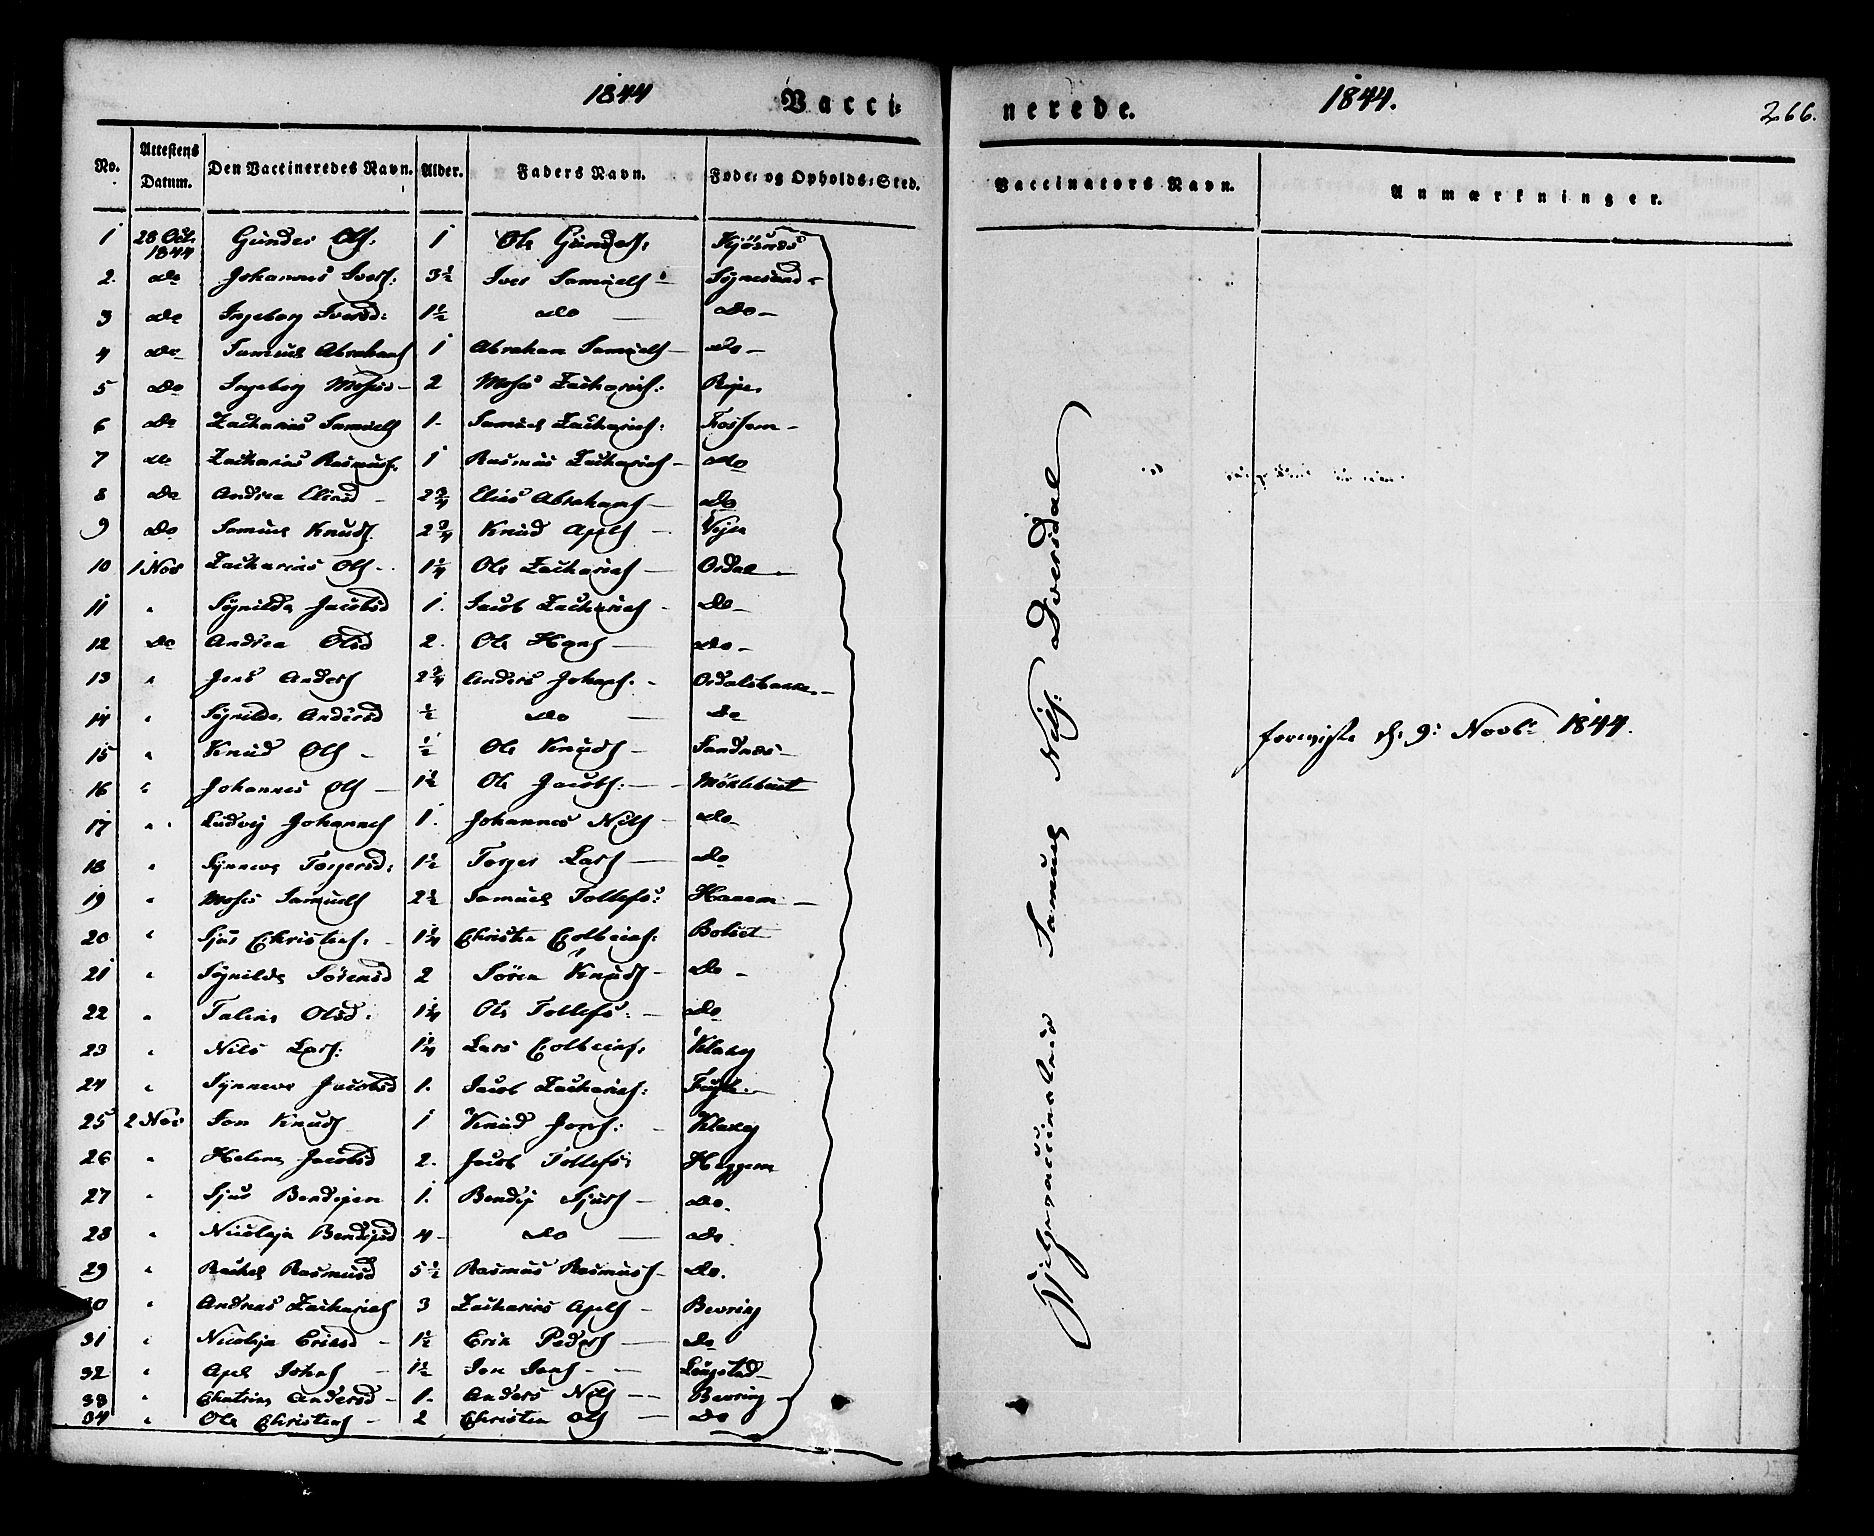 1844 Vacci-
nerede. 1844. 266.
No. Attestens Datum. Den Vaccineredes Navn. Alder. Faders Navn. Føde- og Opholds-Sted.
Vaccinators Navn. Anmærkninger.
1 28 Oct. 1844 Gunder Ols: 1 Ole Gunders: Kjösnes
2. do Johannes Ivers: 3½ Iver Samuels Sögnesand
3 do Ingeborg Iversd: 1½ do do
4 do Samuel Abrahams 1 Abraham Samuels do
5 do Ingeborg Mosesd 2 Moses Zacharias: Ripe
6 do Zacharias Samuels 1. Samuel Zacharias: Fossem
7 do Zacharias Rasmus. 1 Rasmus Zacharias do
8 do Andrea Eliasd 2¾ Elias Abrahams do
9 do Samuel Knuds 2¾ Knud Apels Veje
10 1 Nov Zacharias Ols 1¼ Ole Zacharias Osdal
11 " Sÿnilda Jacobsd 1. Jacob Zacharias do
12 do Andrea Olsd 2. Ole Hans do
13 " Jens Anders 2¾ Anders Johans: Osdalsbakke
14 " Sÿnilde Andersd ½ do do
15 " Knud Ols ½ Ole Knuds Sandnes
16 " Johannes Ols 1½ Ole Jacobs: Möklebust
17 " Ludvig Johannes 1. Johannes Nils do
18 " Synneve Torgersd: 1½ Torger Lars do
19 " Moses Samuels 2½ Samuel Tollefs: Haaem
20 " Sjur Christens: 1¼ Christen Colbeins: Bolset
21 " Sÿnilde Sörensd 2 Sören Knuds do
22 " Taline Olsd: 1¼ Ole Tollefs: do
23 " Nils Lars: 1¼ Lars Colbeins: Klakeg
24 " Synneve Jacobsd 1. Jacob Zacharias: Fugle
25 2 Nov Jon Knuds 1 Knud Jons: Klakeg
26 " Helene Jacobsd 2. Jacob Tollefs: Heggem
27 " Sjur Bendixen 1. Bendix Sjurs do
28 " Nicolaja Bendixd 4 do do
29 " Rachel Rasmusd 5½ Rasmus Rasmus do.
30 " Andreas Zacharias 3 Zacharias Apels Bevring
31 " Nicolaja Ericsd 1½ Erik Peders do
32 " Apel Johns 1½ Jon Jons Längstad
33 " Chatrine Andersd 1. Anders Nils Bevring
34 " Ole Christens 2 Christen Ols do
Hjelpevaccinateur Samuel Nils: Dvergsdal
foreviste d. 9. Novbr 1844.